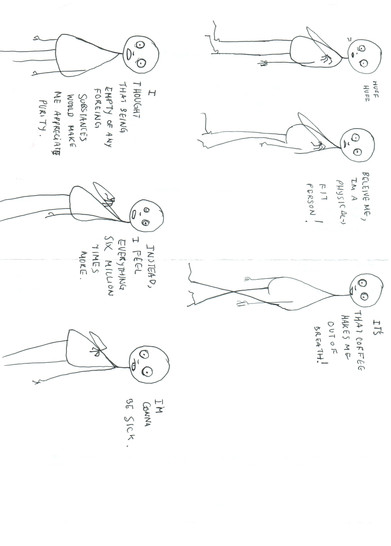 HUFF
HUFF
BELEIVE ME,
IM A
PHYSICALLY
FIT
PERSON!
IT'S
THAT COFFEE
MAKES ME
OUT OF
BREATH!
I
THOUGHT
THAT BEING
EMPTY OF ANY
FORCING
SUBSTANCES
WOULD MAKE
ME APPRECIATE
PURITY.
INSTEAD,
I FEEL
EVERYTHING
SIX MILLION
TIMES
MORE.
I'M
GONNA
BE SICK.